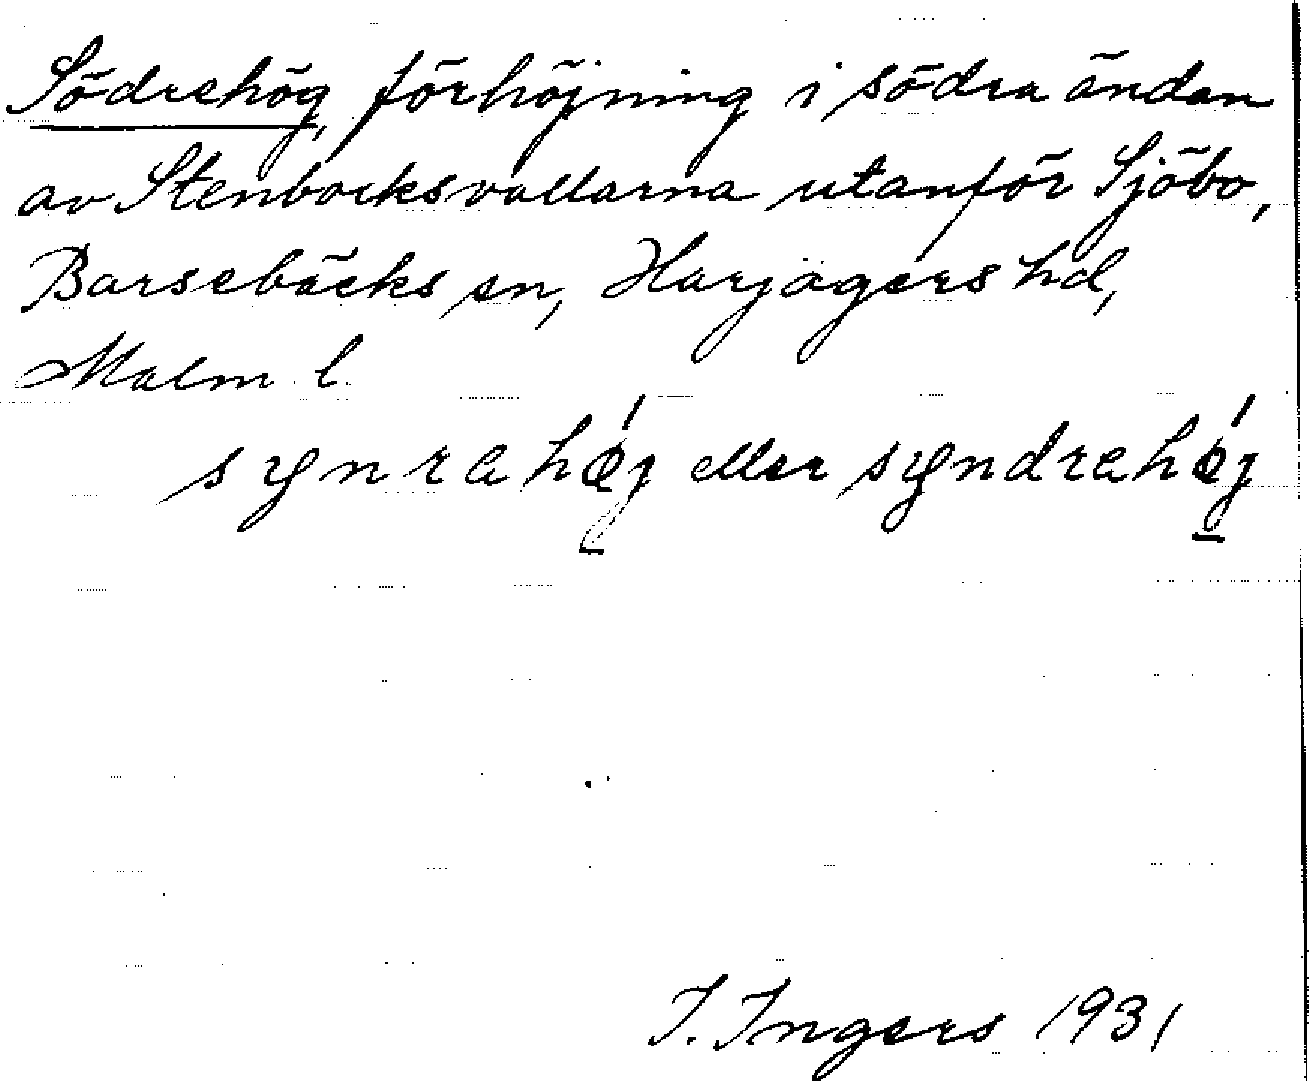 Södrehög, förhöjning i södra ändan
av Stenbocksvallarna utanför Sjöbo,
Barsebäcks sn, Harjagers hd,
Malm l.
synrahǿj eller syndrehǿj
I. Ingers 1931